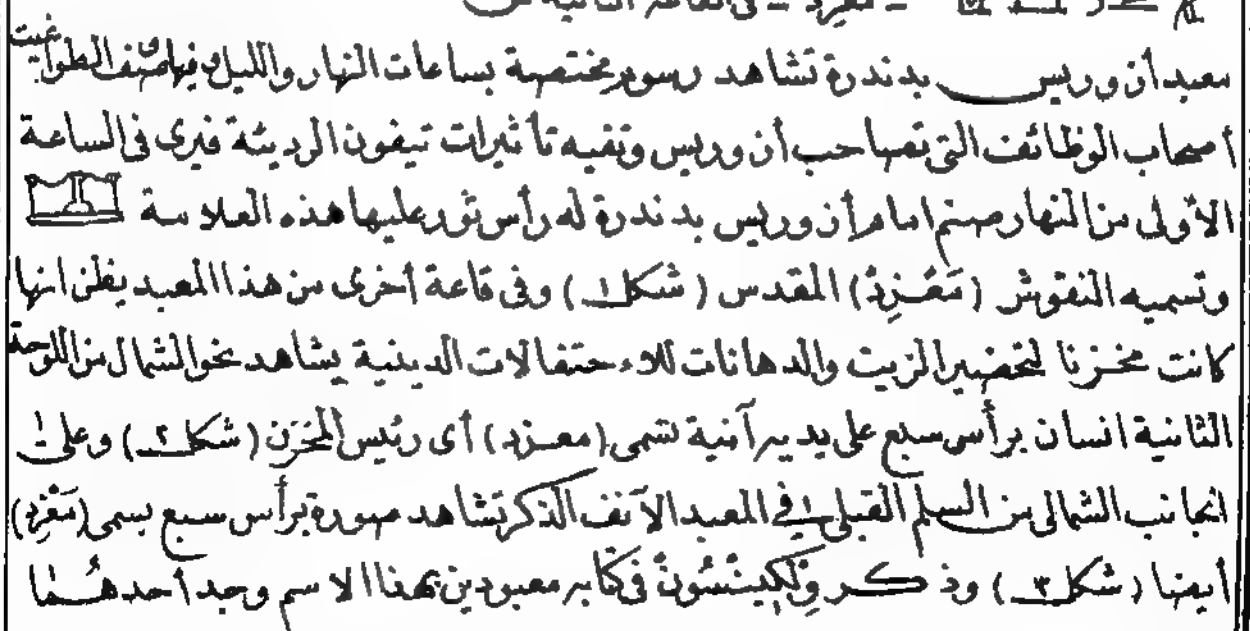 مَعْزِد - فى القاعة الثانية من
معبد أن وريس بدندرة تشاهد رسوم مختصة بساعات النهار والليل وفيها صنف الطواغيت
أصحاب الوظائف التى تصاحب أن وريس وتقيه تأثيرات تيفون الرديئة فيرى فى الساعة
الأولى من النهار صنم امام أن وريس بدندرة له رأس ثور عليها هذه العلامة
وتسميه النقوش (مَعْزِدُ) المقدس (شكل ١) وفى قاعة أخرى من هذا المعبد يظن انها
كانت مخزنا لتحضير الزيت والدهانات للاءحتفالات الدينية يشاهد نحو الشمال من اللوحة
الثانية انسان برأس سبع على يديه آنية تسمى (معزد) أى رئيس المخزن (شكل ٢) وعلى
الجانب الشمالى من السلم القبلى فى المعبد الآنف الذكر تشاهد صورة برأس سبع يسمى (مَعْزِد)
أيضا (شكل ٣) وذكر ولكينسُون فى كتابه معبودين بهذا الاسم وجد أحدهُما